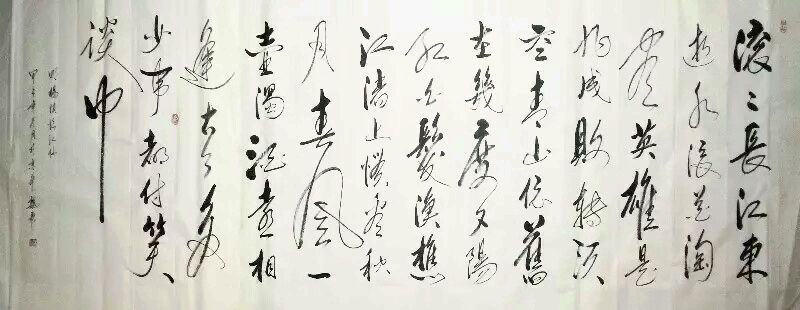 滚〻長江東
逝水浪花淘
盡英雄是
非成敗轉頭
空青山依舊
在幾度夕陽
紅白髮漁樵
江渚上慣看秋
月春風一
壺濁酒喜相
逢古今多
少事都付笑
談中
明楊慎臨江仙
甲午年